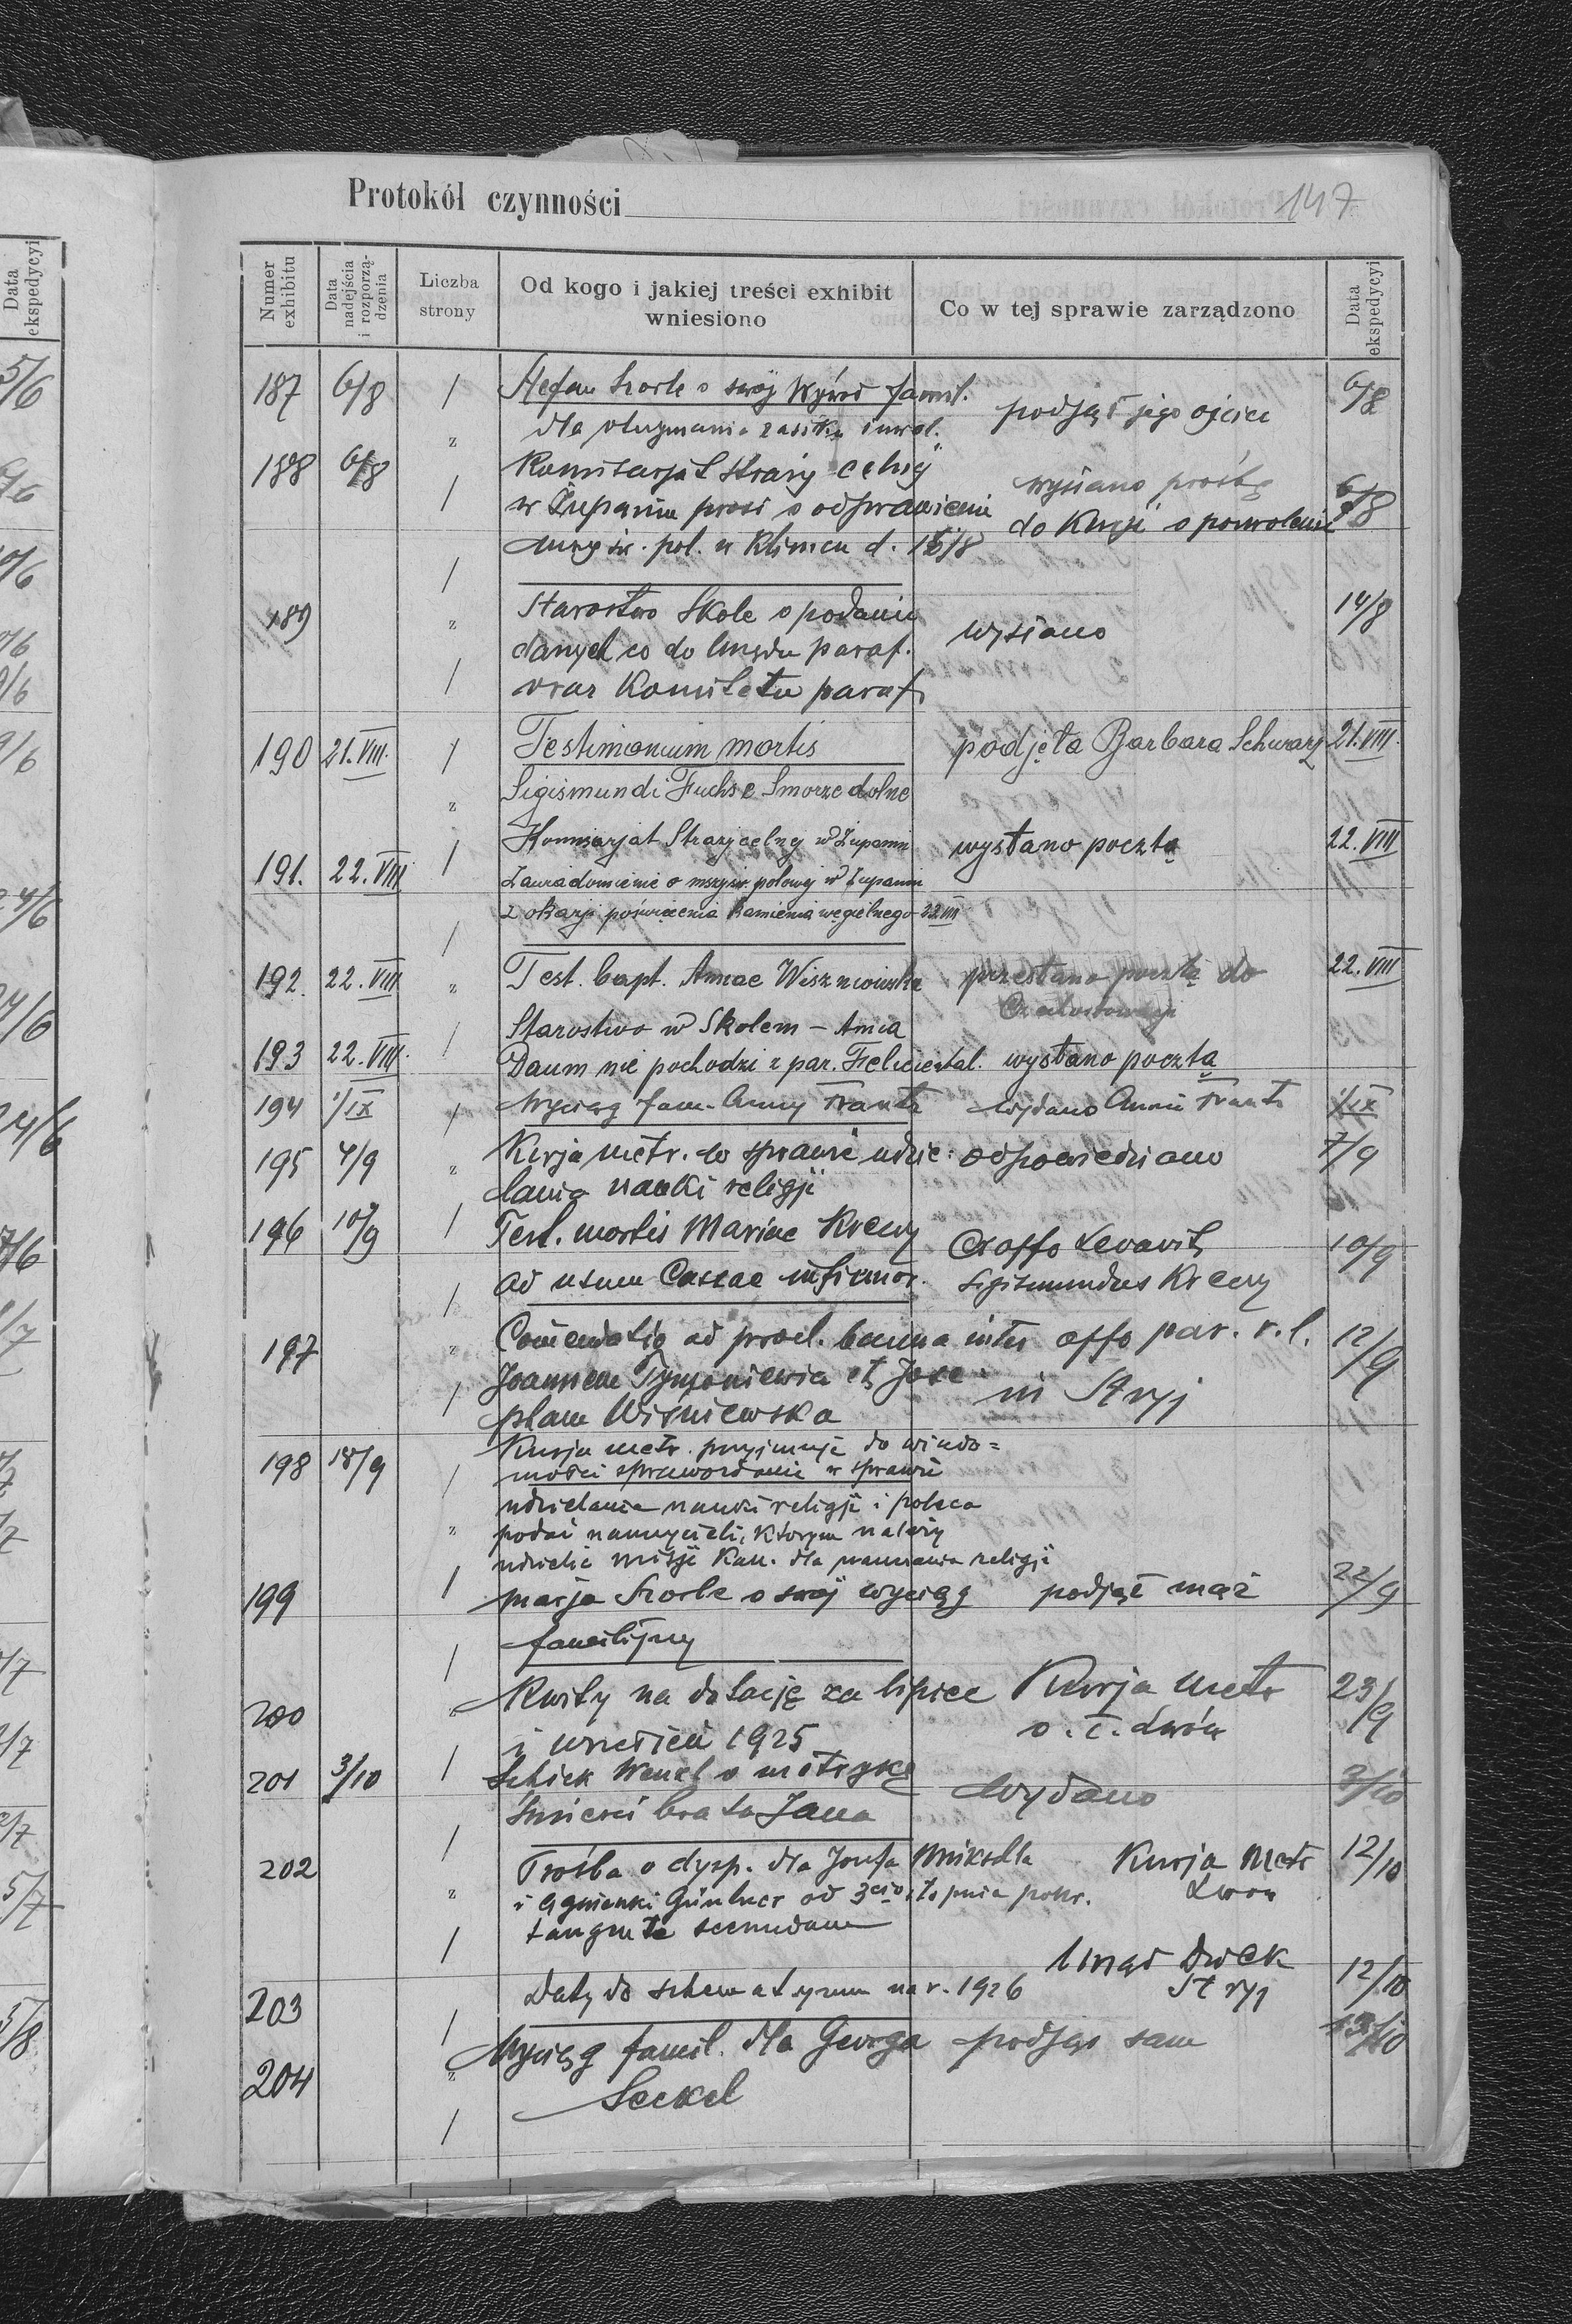 Protokół czynności 147
Data ekspedycyi
Numer exhibitu
Data nadejścia i rozporządzenia
Liczba strony
Od kogo i jakiej treści exhibit wniesiono
Co w tej sprawie zarządzono
Data ekspedycyi
187 6/8 / Stefan o swój Wywód famil. podjął jego ojciec 6/8
dla otrzymania zasiłku inwal.
188 6/8 / Komisarjat Straży celnej wysłano prośbę 6/8
w Żupaniu prosi o odprawienie do Kurji o pozwolenie
Mszy św. pol. w Klimcu d. 15/8
189 Starostwo Skole o podanie wysłano 14/8
danych co do Urzędu paraf.
oraz Komitetu paraf.
190 21.VIII. / Testimonium mortis podjęła Barbara Schwarz 21.VIII.
Sigismundi Fuchs e Smorze dolne
Komisarjat Straży celnej w Żupaniu wysłano pocztą 22.VIII
191. 22.VIII / Zawiadomienie o mszy św. polowej w Żupaniu
z okazji poświęcenia kamienia węgielnego 22.VIII
192. 22.VIII " Test. bapt. Annae Wiszniowska przesłano pocztą do 22.VIII
Starostwo w Skolem – Anna
193 22.VIII. Daum nie pochodzi z par. Felicienthal. wysłano pocztą
194 1/IX / Wyciąg fam. Anny Frantz wydano Annie Frantz 1/IX
195 4/9 " Kurja metr. w sprawie udzie- odpowiedziano 7/9
lania nauki religji
196 10/9 / Test. mortis Mariae Kreuz 10/9
ad usum Cassae infirmor. Sigismundus Kreuz
197 Comendatio ad procl. banna inter offo par. r. l. 12/9
Joannem et Jose- in Stryj
pham Wiśniewska
198 18/9 Kurja metr. przyjmuje do wiado=
mości sprawozdanie w sprawie
udzielania nauki religji i poleca
podać nauczycieli, którym należy
udzielić misję kan. dla nauczania religji
199 / Marja o swój wyciąg podjął mąż 22/9
familijny
200 Kwity na dotację za lipiec Kurja Metr 23/9
i wrzesień 1925 o. ł. Lwów
201 3/10 / Schick Wenzel o metrykę wydano 3/10
śmierci brata Jana
202 Prośba o dysp. dla Józefa Kurja Metr 12/10
i Agnieszki Günther od 3cio stopnia pokr. Lwów
tangente secundum
Urząd Dziek
203 Daty do schematyzmu na r. 1926 Stryj 12/10
204 Wyciąg famil. dla Georga podjął sam 13/10
Seckel